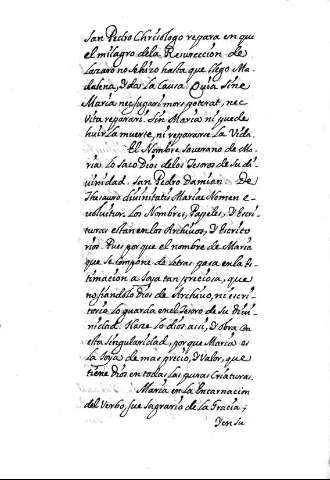 San Pedro Chrisologo repara en que
el milagro dela Resurreccion de
Lazaro no se hizo hasta que llego Ma-
dalena, y da la causa: Quia sine
Maria nec fugari mors poterat, nec
vita reparari. Sin Maria ni puede
huir la muerte, ni repararse la Vida.
El Nombre soverano de Ma-
ria lo saco Dios delos Tesoros de su di-
uinidad. San Pedro Damian: De
Thesauro diuinitatis Mariæ Nomen e-
voluitur. Los Nombres, Papeles, y Escri-
turas estan en los Archiuos, y Escrito-
rios. Pues porque el nombre de Maria
que se compone de letras pasa en la Es-
timacion a Joya tan preciosa, que
no fiandolo Dios de Archiuo, ni escri-
torio, lo guarda en el Tesoro de su Diui-
nidad. Haze lo dios asi, y obra con
esta singularidad, porque Maria es
la Joya de mas precio, y Valor, que
tiene Dios en todas las puras Criaturas.
Maria en la Encarnacion
del Verbo, fue sagrario de la Gracia;
Y en su